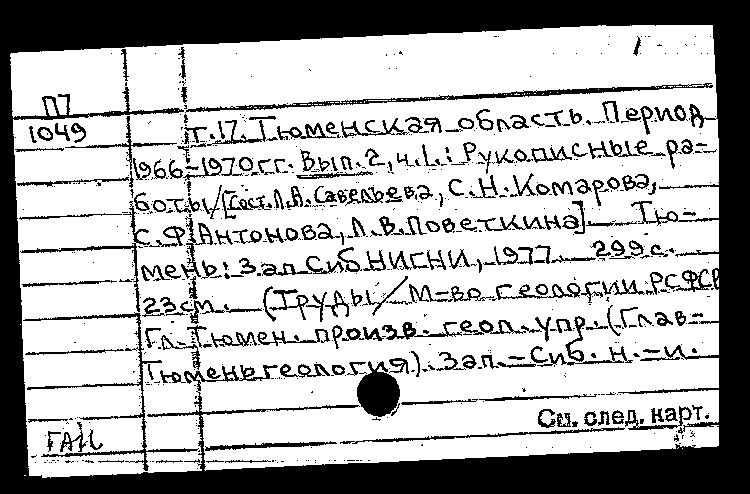 П7
1049
т.17. Тюменская область. Период
1966-1970гг. Вып. 2, ч.1.: Рукописные ра-
боты/[Сост. Л.А. Савельева, С.Н. Комарова,
С.Ф. Антонова, Л.В. Поветкина]. Тю-
мень: ЗапСибНИГНИ, 1977. 299с.
23см. (Труды/М-во геологии РСФСР
Гл. Тюмен. произв. геол. упр. (Глав-
Тюменьгеология). Зап.-Сиб. н.-и.
См. след. карт.